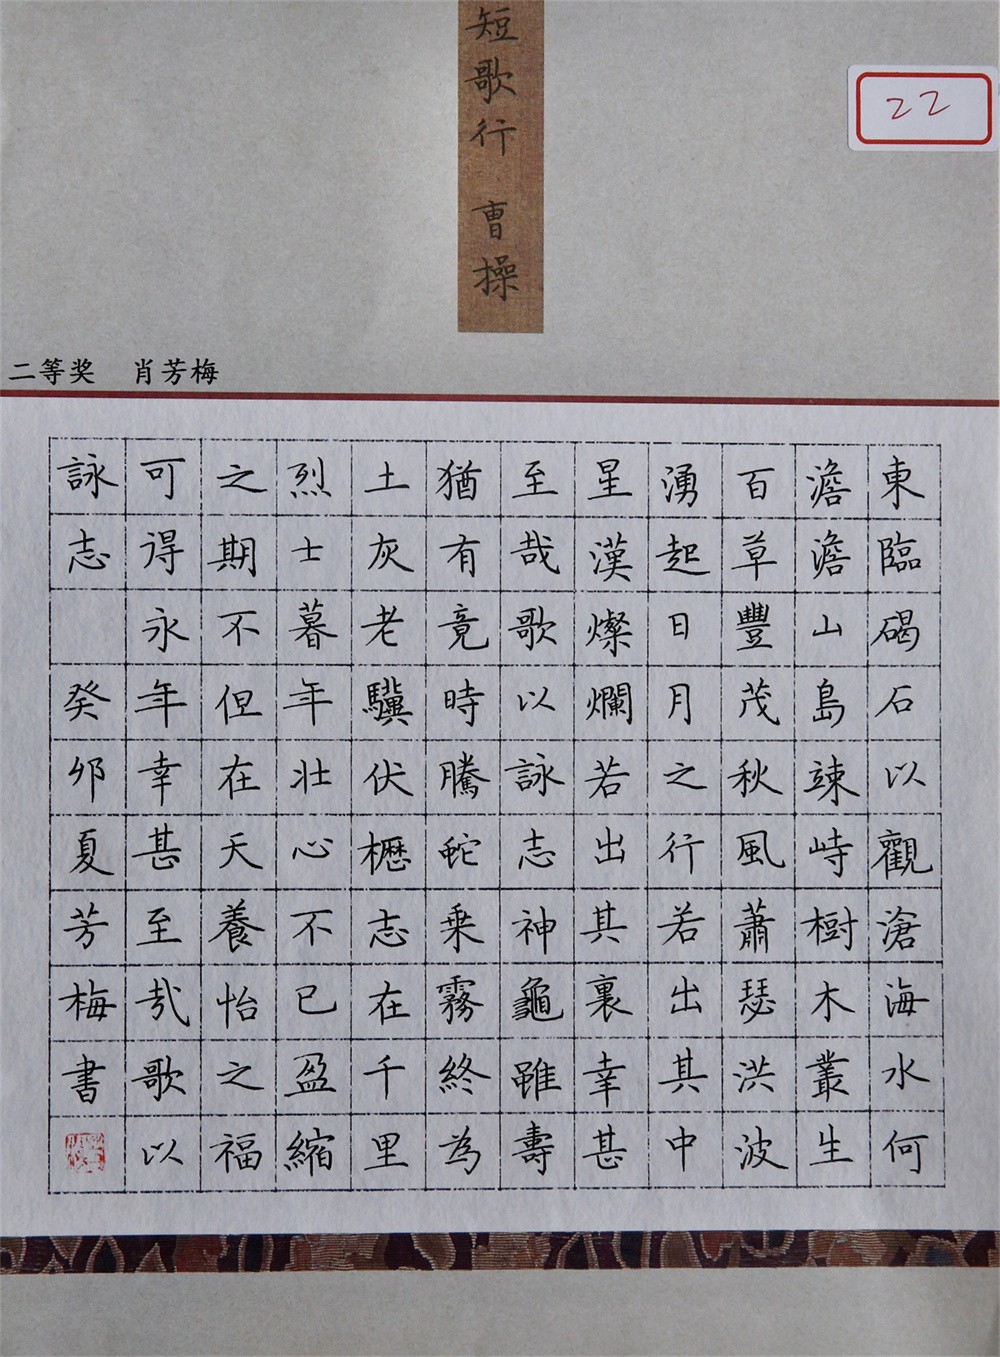 短歌行 曹操
22
二等奖 肖芳梅
東臨碣石以觀滄海水何
澹澹山島竦峙樹木叢生
百草豐茂秋風蕭瑟洪波
湧起日月之行若出其中
星漢燦爛若出其裏幸甚
至哉歌以詠志神龜雖壽
猶有竟時騰蛇乘霧終為
土灰老驥伏櫪志在千里
烈士暮年壯心不已盈縮
之期不但在天養怡之福
可得永年幸甚至哉歌以
詠志 癸卯夏芳梅書